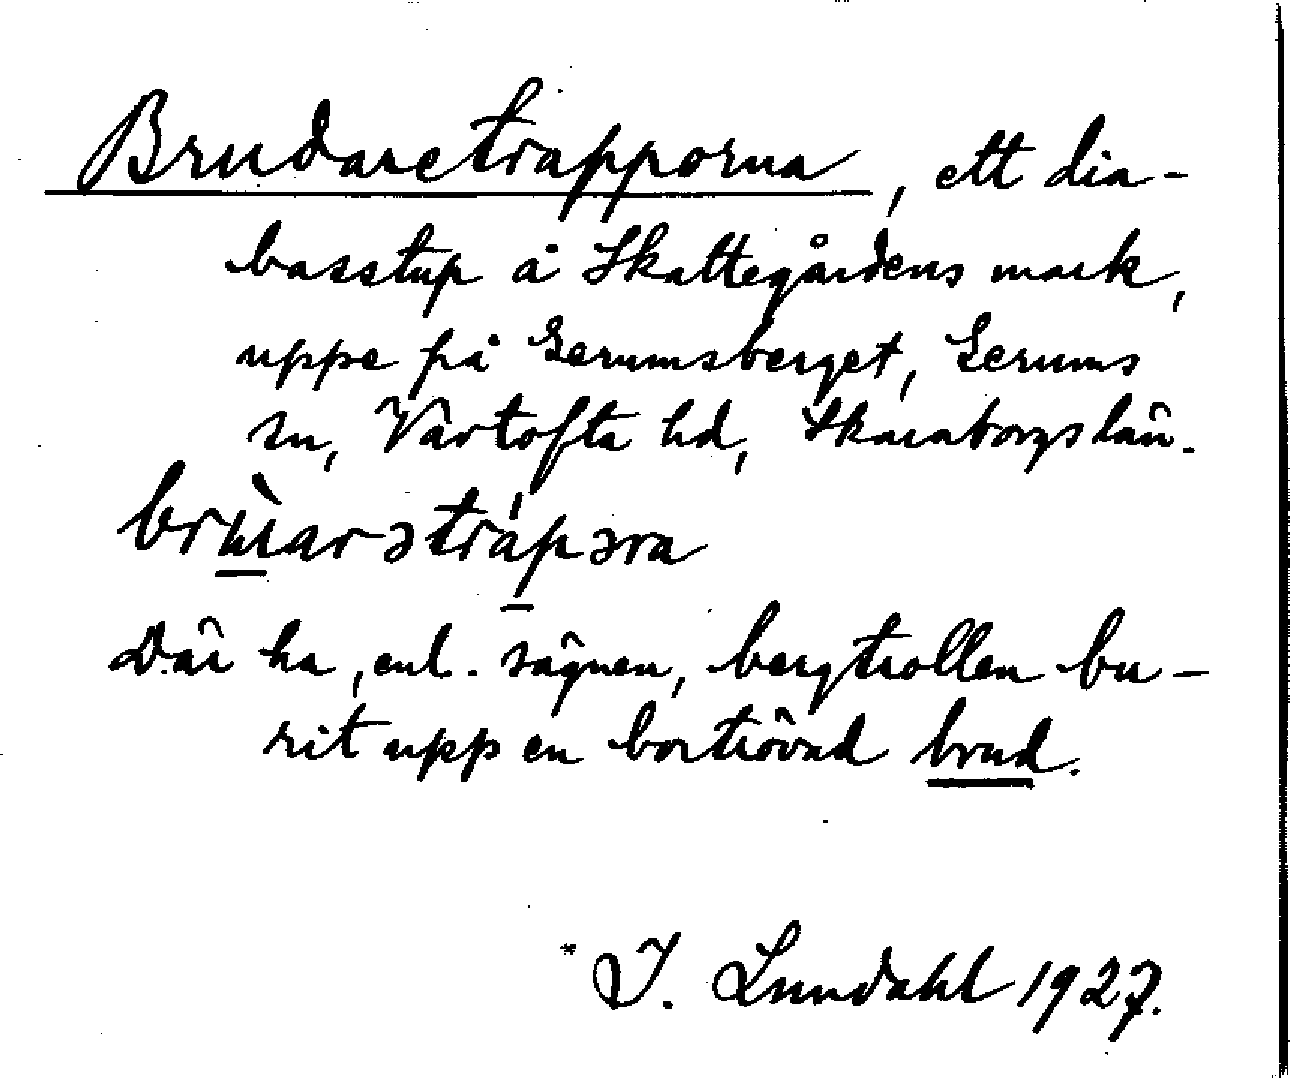 Brudaretrapporna, ett dia-
basstup å Skattegårdens mark,
uppe på Gerumsberget, Gerums
sn, Vartofta hd, Skaraborgs län.
brùarətrápəra
Där ha, enl. sägnen, bergtrollen bu-
rit upp en bortrövad brud.
I. Lundahl 1927.